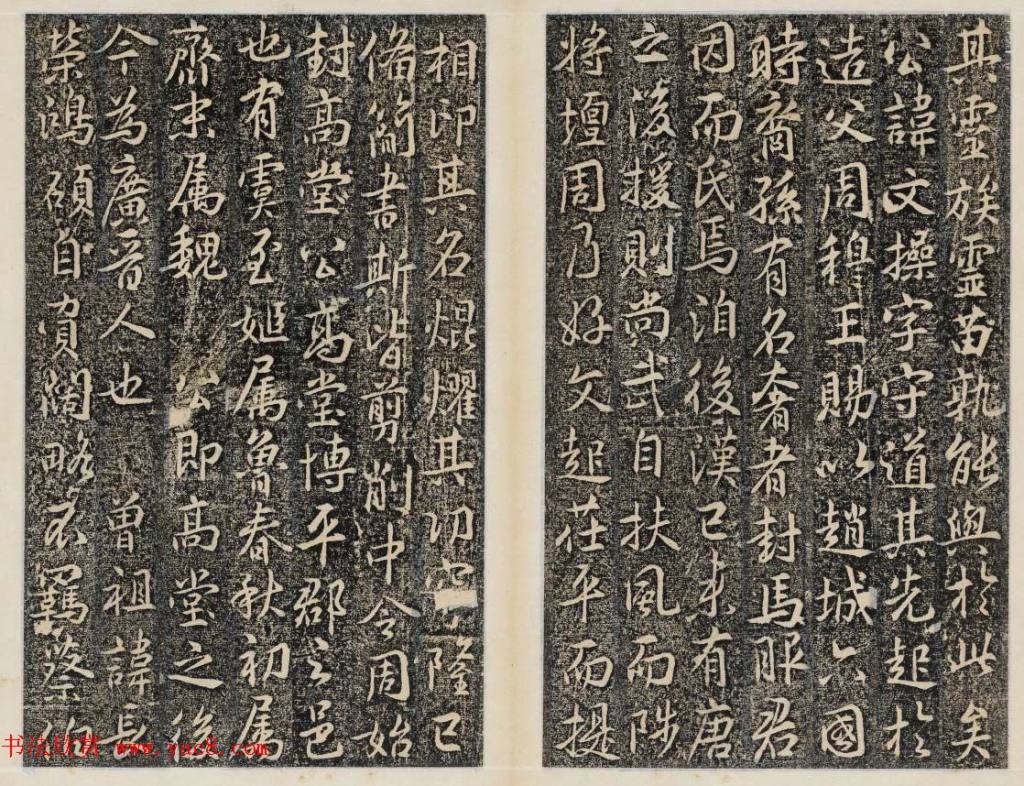 其靈族靈苗孰能與於此矣
公諱文操字守道其先起於
造父周穆王賜以趙城六國
時裔孫有名奢者封馬服君
因而氏焉洎後漢已来有唐
之後援則尚武自扶風而陟
將壇周乃好文起茌平而提
相印其名焜燿其功隆已
俻簡書斯皆剪削中令周始
封高堂公焉堂博平郡之邑
也有虞至姬属魯春秋初属
齊末属魏公即高堂之後
今為廣晉人也曾祖諱長
榮鴻碩自負闊略不羈蔡
书法欣赏 www.yac8.com